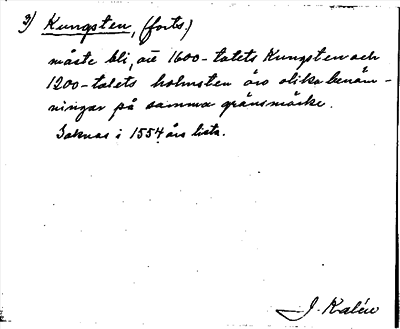 3) Kungsten, (forts.)
måste bli, att 1600-talets Kungsten och
1200-talets holmsten äro olika benäm-
ningar på samma gränsmärke.
Saknas i 1554 års lista.
J. Kalén